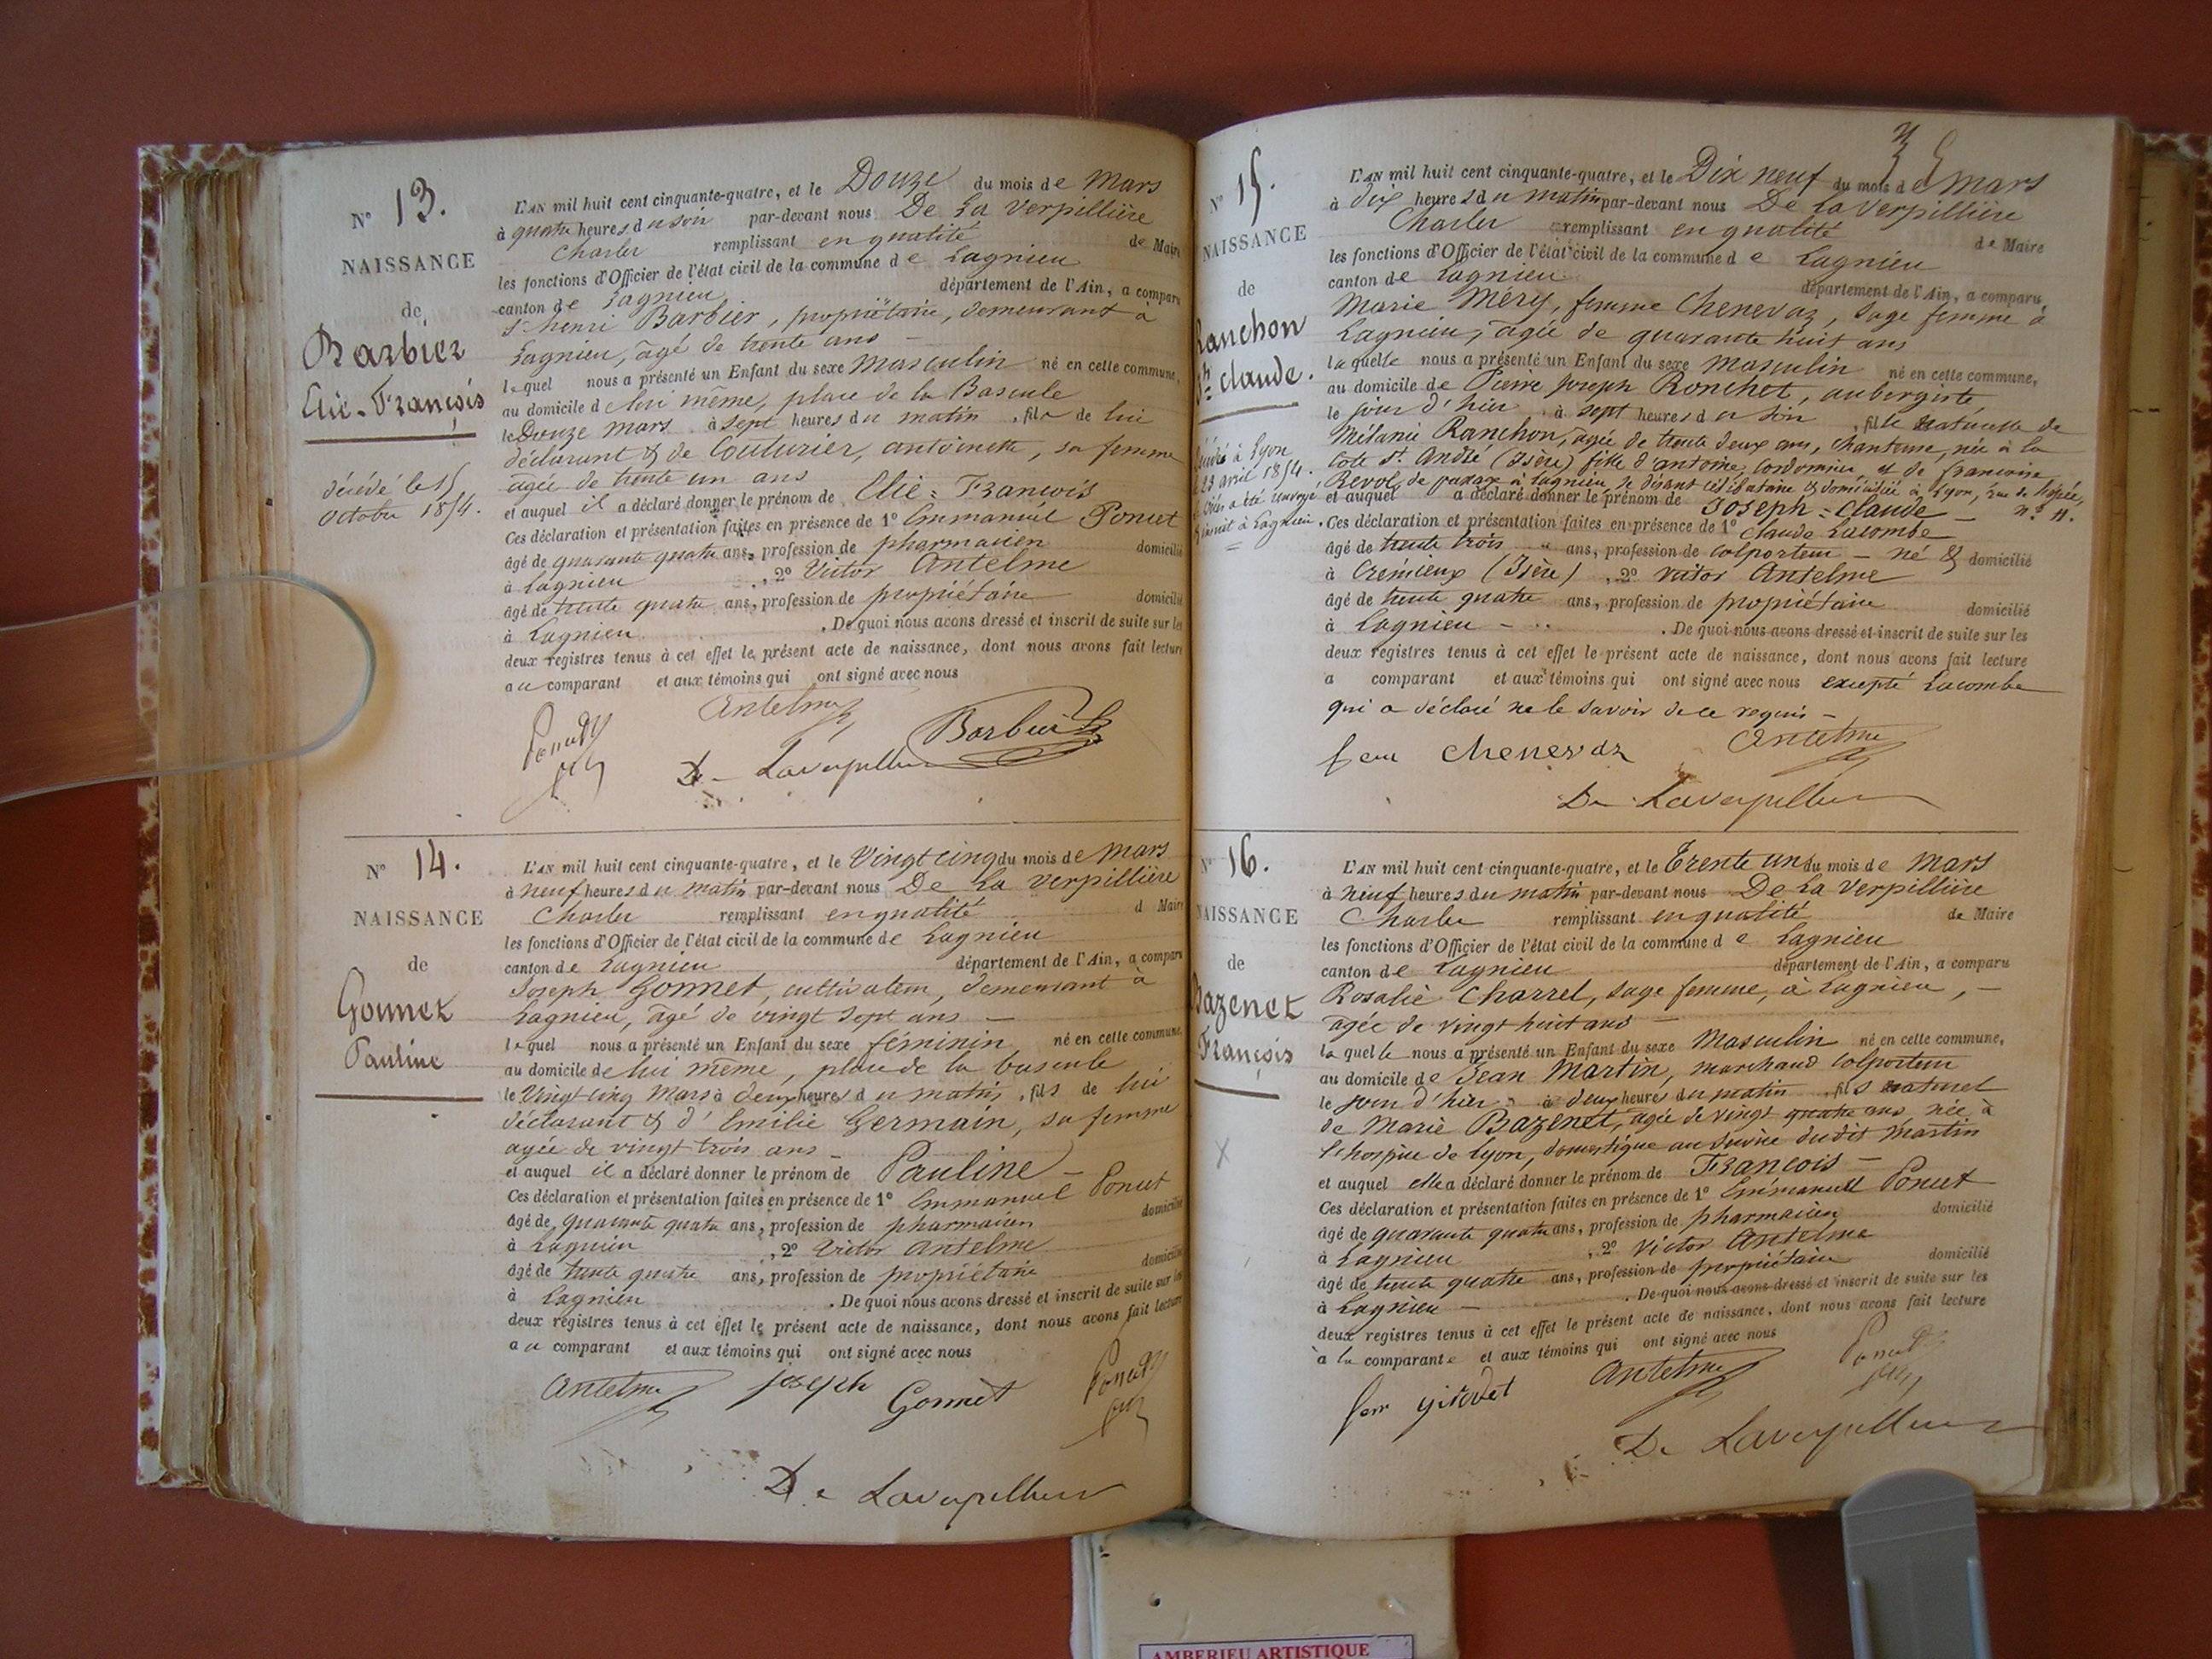 N° 13.
NAISSANCE
de
Barbier
Elie-François
décédé le 15
octobre 1854.
L'AN mil huit cent cinquante-quatre, et le Douze du mois de Mars
à quatre heures du soir par-devant nous De La Verpillière
Charles remplissant en qualité de Maire
les fonctions d'Officier de l'état civil de la commune de Lagnieu
canton de Lagnieu département de l'Ain, a comparu
sr henri Barbier, propriétaire, demeurant à
Lagnieu, âgé de trente ans —
lequel nous a présenté un Enfant du sexe Masculin né en cette commune,
au domicile de lui même, place de la Bascule
le Douze mars à sept heures du matin, fils de lui
déclarant & de Couturier, antoinette, sa femme
agée de trente un ans
et auquel il a déclaré donner le prénom de Elie = François
Ces déclaration et présentation faites en présence de 1° Emmanuel Poncet
âgé de quarante quatre ans, profession de pharmacien domicilié
à Lagnieu, 2° Victor Antelme
âgé de trente quatre ans, profession de propriétaire domicilié
à Lagnieu. De quoi nous avons dressé et inscrit de suite sur les
deux registres tenus à cet effet le présent acte de naissance, dont nous avons fait lecture
au comparant et aux témoins qui ont signé avec nous
Antelme
Poncet Barbier
De Laverpilliere
N° 14.
NAISSANCE
de
Gonnet
Pauline
L'AN mil huit cent cinquante-quatre, et le Vingt cinq du mois de Mars
à neuf heures du matin par-devant nous De La Verpillière
Charles remplissant en qualité d Maire
les fonctions d'Officier de l'état civil de la commune de Lagnieu
canton de Lagnieu département de l'Ain, a comparu
Joseph Gonnet, cultivateur, demeurant à
Lagnieu, âgé de vingt sept ans —
lequel nous a présenté un Enfant du sexe féminin né en cette commune,
au domicile de lui même, place de la bascule
le Vingt cinq Mars à deux heures du matin, fils de lui
déclarant & d'Emilie Germain, sa femme
agée de vingt trois ans —
et auquel il a déclaré donner le prénom de Pauline —
Ces déclaration et présentation faites en présence de 1° Emmanuel Poncet
âgé de quarante quatre ans, profession de pharmacien domicilié
à Lagnieu, 2° Victor Antelme
âgé de trente quatre ans, profession de propriétaire domicilié
à Lagnieu. De quoi nous avons dressé et inscrit de suite sur les
deux registres tenus à cet effet le présent acte de naissance, dont nous avons fait lecture
au comparant et aux témoins qui ont signé avec nous
Antelme joseph Gonnet Poncet
De Laverpilliere
N° 15.
NAISSANCE
de
Ranchon
Jh claude.
L'AN mil huit cent cinquante-quatre, et le Dix neuf du mois de Mars
à dix heures du matin par-devant nous De La Verpillière
Charles remplissant en qualité de Maire
les fonctions d'Officier de l'état civil de la commune de Lagnieu
canton de Lagnieu département de l'Ain, a comparu
Marie Méry, femme Chenevaz, sage femme à
Lagnieu, âgée de quarante huit ans
laquelle nous a présenté un Enfant du sexe Masculin né en cette commune,
au domicile de Pierre joseph Ronchet, aubergiste
le jour d'hier à sept heures du soir, fils naturelle de
Mélanie Ranchon, agée de trente deux ans, chanteuse, née à la
Cote St. André (Isère) fille d'antoine, cordonnier, et de francoise
Revol, de passage à Lagnieu, se disant célibataire & domiciliée à Lyon, rue de
et auquel a déclaré donner le prénom de Joseph = Claude — n° 11.
Ces déclaration et présentation faites en présence de 1° Claude Lacombe
âgé de trente trois ans, profession de colporteur — né & domicilié
à Crémieux (Isère), 2° Victor Antelme
âgé de trente quatre ans, profession de propriétaire domicilié
à Lagnieu —. De quoi nous avons dressé et inscrit de suite sur les
deux registres tenus à cet effet le présent acte de naissance, dont nous avons fait lecture
a comparant et aux témoins qui ont signé avec nous excepté Lacombe
qui a déclaré ne le savoir de ce requis —
fem chenevaz Antelme
De Laverpilliere
N° 16.
NAISSANCE
de
Bazenet
François
X
L'AN mil huit cent cinquante-quatre, et le Trente un du mois de Mars
à neuf heures du matin par-devant nous De La Verpillière
Charles remplissant en qualité de Maire
les fonctions d'Officier de l'état civil de la commune de Lagnieu
canton de Lagnieu département de l'Ain, a comparu
Rosalie Charrel, sage femme, à Lagnieu, —
agée de vingt huit ans —
laquelle nous a présenté un Enfant du sexe Masculin né en cette commune,
au domicile de Jean Martin, marchand colporteur
le jour d'hier à deux heures du matin, fils naturel
de Marie Bazenet, agée de vingt quatre ans née à
l'hospice de Lyon, domestique au service dudit Martin
et auquel elle a déclaré donner le prénom de François —
Ces déclaration et présentation faites en présence de 1° Emmanuel Poncet
âgé de quarante quatre ans, profession de pharmacien domicilié
à Lagnieu, 2° Victor Antelme
âgé de trente quatre ans, profession de propriétaire domicilié
à Lagnieu —. De quoi nous avons dressé et inscrit de suite sur les
deux registres tenus à cet effet le présent acte de naissance, dont nous avons fait lecture
à la comparante et aux témoins qui ont signé avec nous
fem girodet Antelme Poncet
De Laverpilliere
AMBERIEU ARTISTIQUE